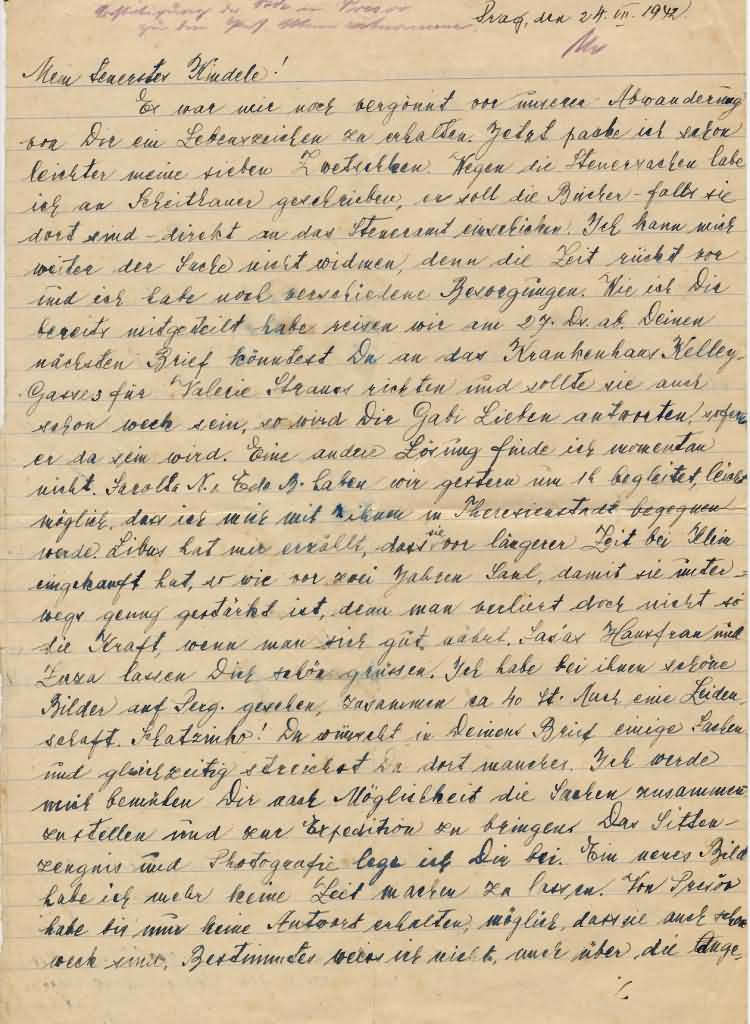 Bestätigung der Rode in Presov
zu dem
Prag, den 24. VII. 1942
Mein teuerstes Kindele!
Es war mir noch vergönnt vor unserer Abwanderung
von Dir ein Lebenszeichen zu erhalten. Jetzt packe ich schon
leichter meine sieben Zwetschken. Wegen die Steuersachen habe
ich an Scheithauer geschrieben, er soll die Bücher – falls sie
dort sind – direkt an das Steueramt einschicken. Ich kann mich
weiter der Sache nicht widmen, denn die Zeit rückt vor
und ich habe noch verschiedene Besorgungen. Wie ich Dir
bereits mitgeteilt habe reisen wir am 27. Ds. ab. Deinen
nächsten Brief könntest Du an das Krankenhaus Kelley-
Gasse 3 für Valerie Strauss richten und sollte sie auch
schon weck sein, so wird Dir Gabi Lieben antworten, sofern
er da sein wird. Eine andere Lösung finde ich momentan
nicht. Sarolta N. Edo B. haben wir gestern um 1h begleitet, leicht
möglich, dass ich mich mit ihnen in Theresienstadt begegnen
werde. Libus hat mir erzählt, dass sie vor längerer Zeit bei Klein
eingekauft hat, so wie vor zwei Jahren Saul, damit sie unter=
wegs genug gestärkt ist, denn man verliert doch nicht so
die Kraft, wenn man sich gut nährt. Sasas Hausfrau und
Zuza lassen Dich schön grüssen. Ich habe bei ihnen schöne
Bilder auf Perg. gesehen, zusammen ca 40 St. Auch eine Leiden-
schaft. Schatzinko! Du wünscht in Deinem Brief einige Sachen
und gleichzeitig streichst Du dort manches. Ich werde
mich bemühen Dir nach Möglichkeit die Sachen zusammen
zu stellen und zur Expedition zu bringen. Das Sitten-
zeugnis und Photografie lege ich Dir bei. Ein neues Bild
habe ich mehr keine Zeit machen zu lassen. Von Presov
habe bis nun keine Antwort erhalten, möglich, dass sie auch schon
weck sind. Bestimmtes weiss ich nicht, auch über die Ange-
./.